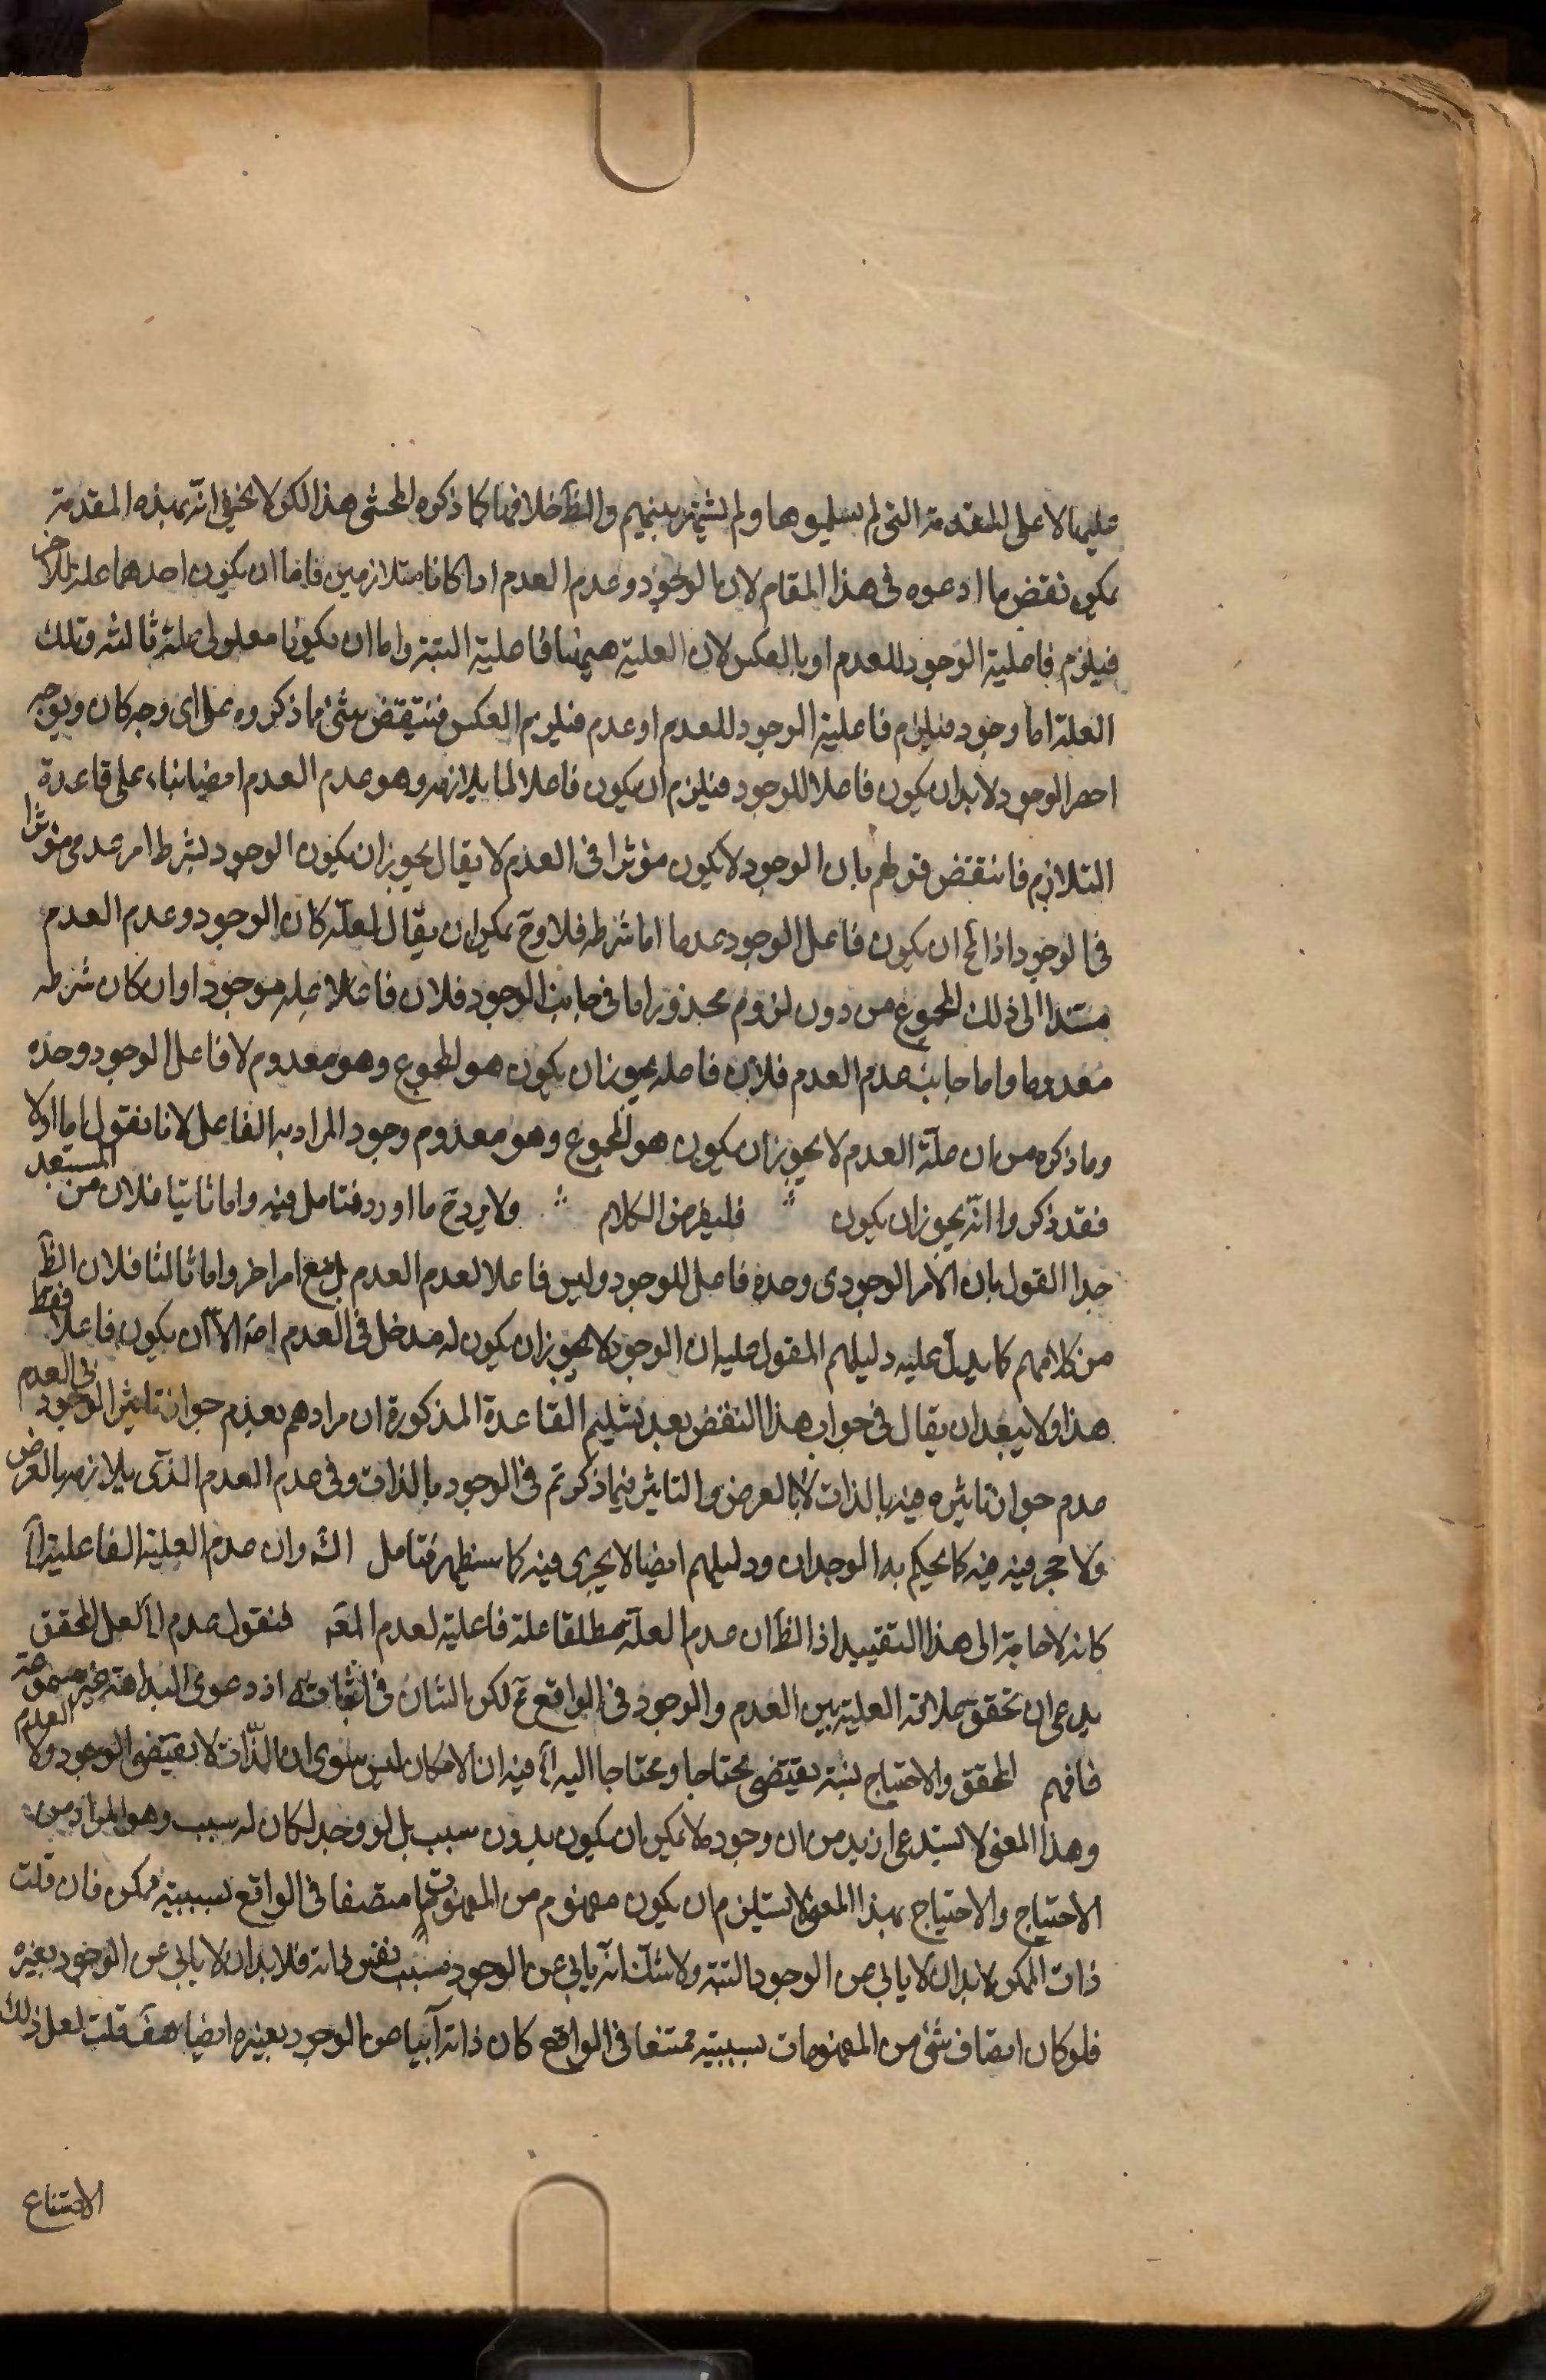 عليها لا على المقدمة التي لم يسلموها ولم يشتهر بينهم والظ خلافها كما ذكره المحشى هذا لكن لا يخفى انّه بهذه المقدمة
يمكن نقض ما ادعوه فى هذا المقام لان الوجود وعدم العدم اذا كانا متلازمين فاما ان يكون احدهما علة للآخر
فيلزم فاعلية الوجود للعدم او بالعكس لان العلية هيهنا فاعلية البتة واما ان يكونا معلولى علة ثالثه وتلك
العلة اما وجود فيلزم فاعلية الوجود للعدم او عدم فيلزم العكس فينتقض شئ ما ذكروه على اى وجه كان وبوجه
اخر الوجود لا بد ان يكون فاعلا للوجود فيلزم ان يكون فاعلا لما يلازمه وهو عدم العدم ايضا بناء على قاعدة
التلازم فانتقض قولهم بان الوجود لا يكون مؤثرا فى العدم لا يقال يجوز ان يكون الوجود بشرط امر عدمى مؤثرا
فى الوجود اذ ان يكون فاعل الوجود عدما اما شرطه فلا وح يمكن ان يقال لعلّه كان الوجود وعدم العدم
مستندا الى ذلك المجموع من دون لزوم محذور اما فى جانب الوجود فلان فاعلا عله موجود اوان كان شرطه
معدوما واما جانب عدم العدم فلان فاعله يجوز ان يكون هو المجموع وهو معدوم لا فاعل الوجود وحده
وما ذكره من ان علّة العدم لا يجوز ان يكون هو المجموع وهو معدوم وجود المراد به الفاعل لانا نقول اما اولا
فقد ذكروا انّه يجوز ان يكون فليفرض الكلام ولا يرد ح ما اورد فتامل فيه واما ثانيا فلان من المستبعد
جدا القول بان الامر الوجودى وحده فاعل للوجود وليس فاعلا لعدم العدم بل مع امر اخر واما ثالثا فلان الظ
من كلامهم كما يدلّ عليه دليلهم المقول عليه ان الوجود لا يجوز ان يكون له مدخل فى العدم اصة الا ان يكون فاعلا فقط
هذا ولا يبعد ان يقال فى جواب هذا النقض بعد تسليم القاعدة المذكورة ان مرادهم بعدم جواز تاثير الوجود فى العدم
عدم جواز تاثيره فيه بالذات لا بالعرض والتاثير فيما ذكرتم فى الوجود بالذات وفى عدم العدم الذى يلازمه بالعرض
ولا حجر فيه فيه كما يحكم به الوجدان ودليلهم ايضا لا يجرى فيه كما سيظهر فتامل الشه وان عدم العلية الفاعلية آ
كانه لا حاجة الى هذا التقييد اذ الظ ان عدم العلّة مطلقا علة فاعلية لعدم المعه فنقول عدم آ لعل المحقق
يدعى ان تحقق علاقة العلية بين العدم والوجود فى الواقع تم لكن الشان فى اثباته اذ دعوى البداهة غير مسموعة
فافهم المحقق والاحتياج نسبة تقتضى محتاجا ومحتاجا اليه آ فيه ان الامكان ليس سوى ان الذّات لا يقتضى الوجود ولا العدم
وهذا المعنى لا يستدعى ازيد من ان وجوده لا يمكن ان يكون بدون سبب بل لو وجد لكان له سبب وهو المراد من
الاحتياج والاحتياج بهذا المعنى لا يستلزم ان يكون مفهوم من المفهومات متصفا فى الواقع بسببية ممكن فان قلت
ذات الممكن لا بد ان لا يابى عن الوجود البتة ولا شك انّه يابى عن الوجود بسبب نفس ذاته فلا بد ان لا يابى عن الوجود بغيره
فلو كان اتصاف شئ من المفهومات بسببيته ممتنعا فى الواقع كان ذاته آبيا عن الوجود بغيره ايضا هف قلت لعل ذلك
الامتناع